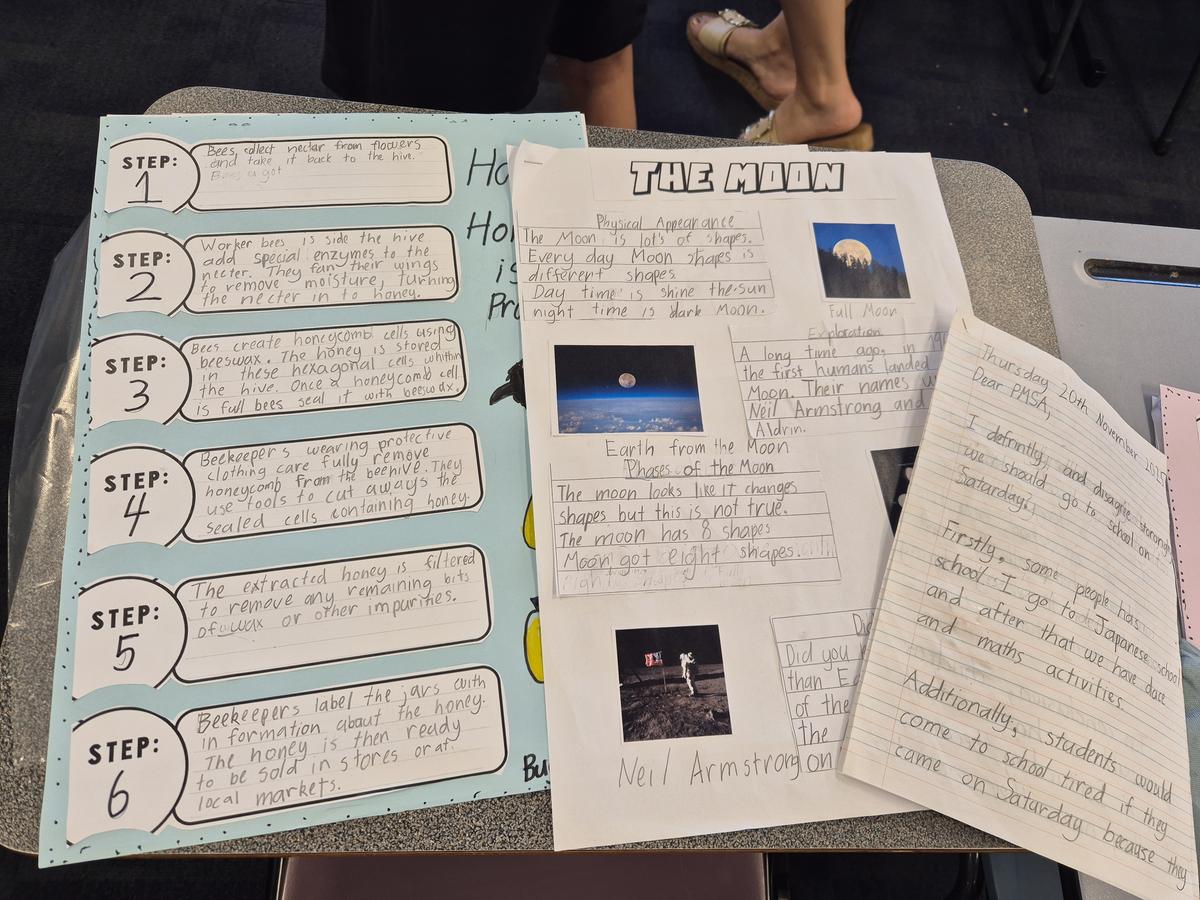 STEP:
1
Bees collect nectar from flowers
and take it back to the hive.
Bees a got
STEP:
2
Worker bees is side the hive
add special enzymes to the
necter. They fan their wings
to remove moisture, turning
the necter in to honey.
STEP:
3
Bees create honeycomb cells using
beeswax. The honey is stored
in these hexagonal cells whithin
the hive. Once a honeycomb cell
is full bees seal it with beeswax.
STEP:
4
Beekeepers wearing protective
clothing care fully remove
honeycomb from the beehive. They
use tools to cut aways the
sealed cells containing honey.
STEP:
5
The extracted honey is filtered
to remove any remaining bits
of wax or other impurities.
STEP:
6
Beekeepers label the jars with
in formation about the honey.
The honey is then ready
to be sold in stores or at
local markets.
Ho
Hon
is
Pro
Bu
THE MOON
Physical Appearance
The Moon is lot's of shapes.
Every day Moon shapes is
different shapes.
Day time is shine the sun
night time is dark Moon.
Full Moon
Exploration
A long time ago, in 19
the first humans landed
Moon. Their names w
Neil Armstrong and
Aldrin.
Earth from the Moon
Phases of the Moon
The moon looks like it changes
shapes but this is not true.
The moon has 8 shapes
Moon got eight shapes.
Did
Did you
than Ea
of the
the
on
Neil Armstrong
Thursday 20th November
Dear PMSA,
I defrintly, and disagree
we should go to school on
Saturday?
Firstly, some people has
school. I go to Japanese school
and after that we have dace
and maths activities.
Additionally, students would
come to school tired if they
came on Saturday because they